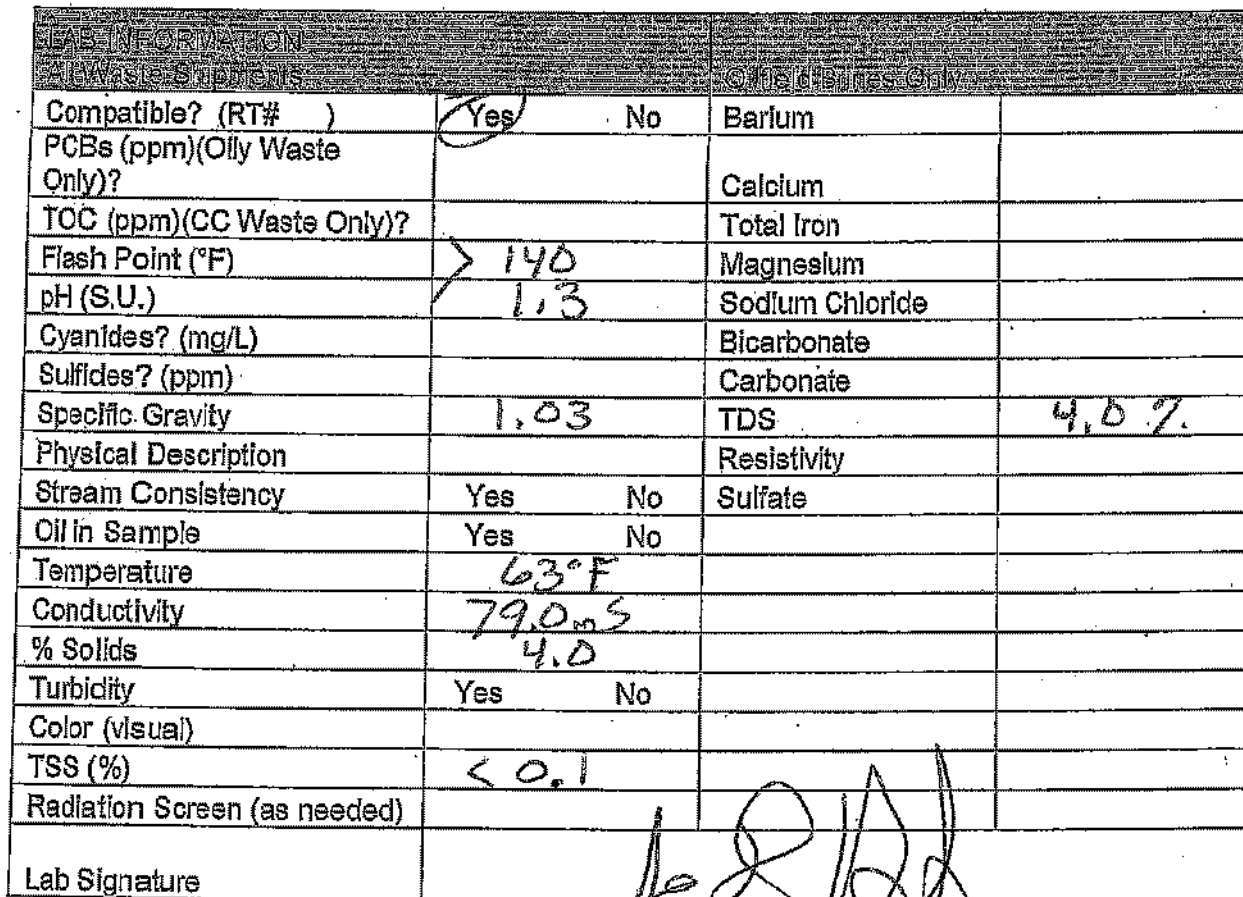 LAB INFORMATION
All Waste Shipments Oilfield Brines Only
Compatible? (RT# ) Yes No Barium
PCBs (ppm)(Oily Waste
Only)? Calcium
TOC (ppm)(CC Waste Only)? Total Iron
Flash Point (°F) > 140 Magnesium
pH (S.U.) 1.3 Sodium Chloride
Cyanides? (mg/L) Bicarbonate
Sulfides? (ppm) Carbonate
Specific Gravity 1.03 TDS 4.0 %
Physical Description Resistivity
Stream Consistency Yes No Sulfate
Oil in Sample Yes No
Temperature 63°F
Conductivity 79.0 mS
% Solids 4.0
Turbidity Yes No
Color (visual)
TSS (%) < 0.1
Radiation Screen (as needed)
Lab Signature